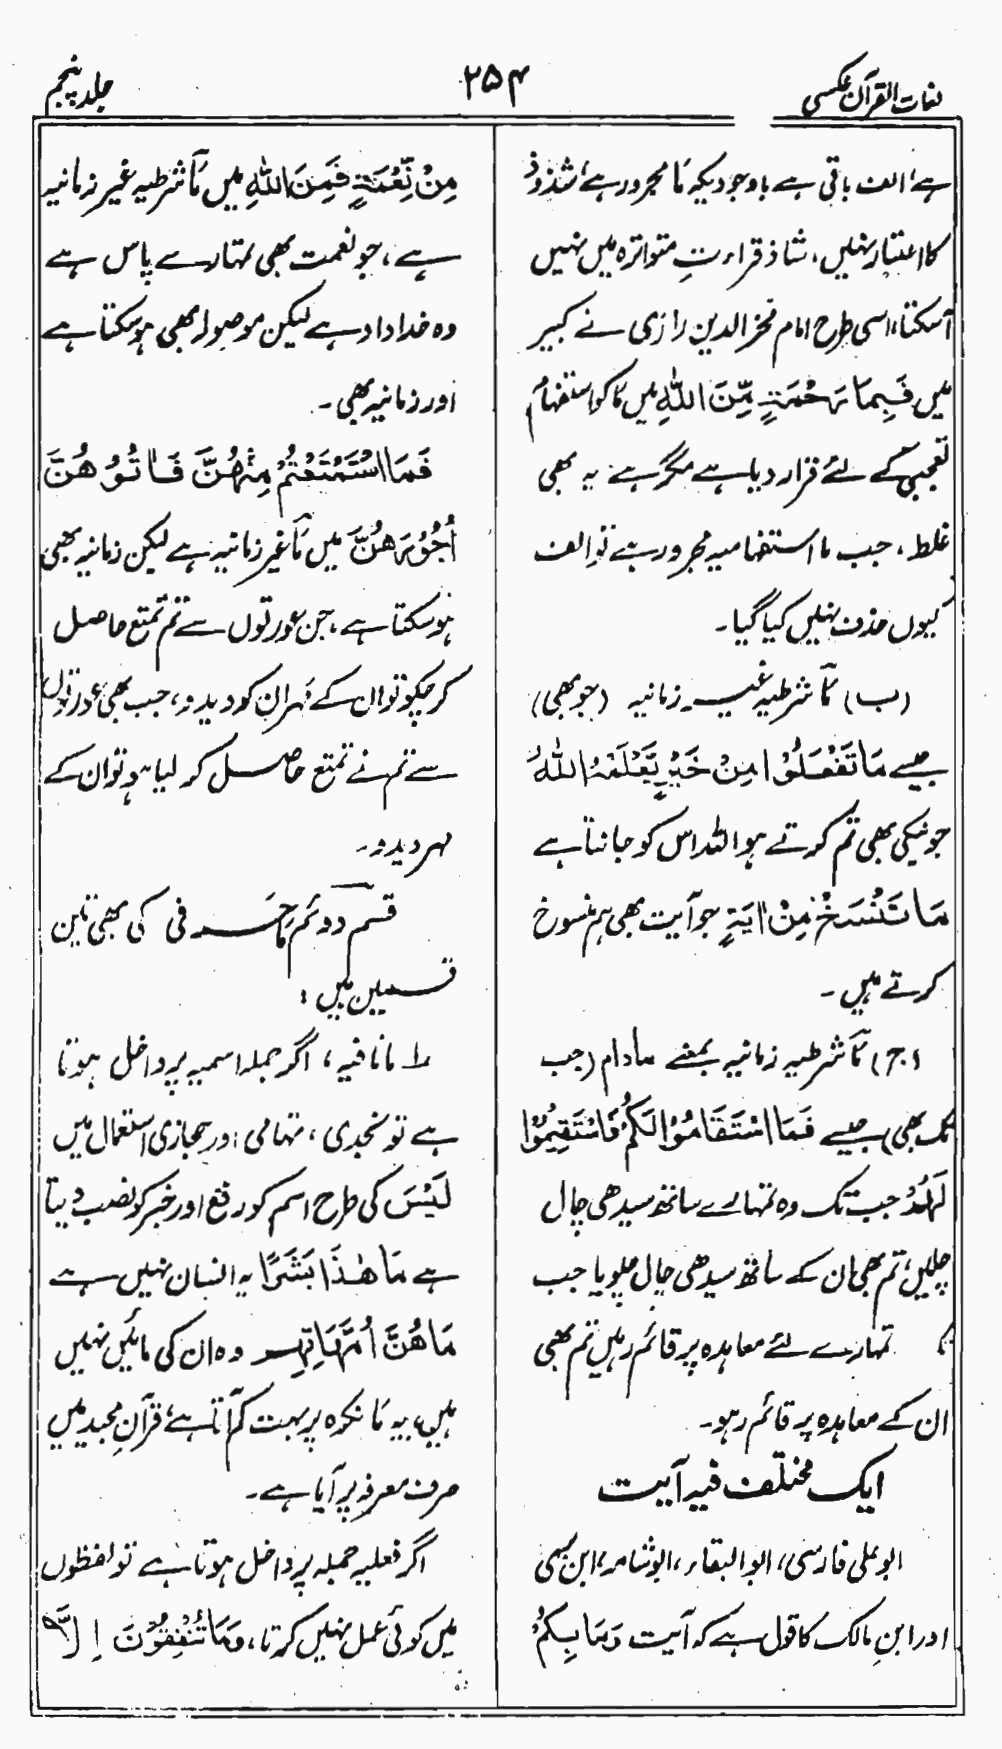 لغات القرآن عکسی
۲۵۴
جلد پنجم
ہے، الف باقی ہے باوجودیکہ مَا مجرور ہے، شذوذ
کا اعتبار نہیں، شاذ قراءتِ متواترہ میں نہیں
آسکتا، اسی طرح امام فخر الدین رازی نے کبیر
میں فَبِمَا رَحْمَۃٍ مِّنَ اللّٰہِ میں مَا کو استفہام
تعجبی کے لئے قرار دیا ہے مگر ہے یہ بھی
غلط، جب ما استفہامیہ مجرور ہے تو الف
کیوں حذف نہیں کیا گیا۔
(ب) مَا شرطیہ غیر زمانیہ (جو بھی)
جیسے مَا تَفْعَلُوْا مِنْ خَیْرٍ یَّعْلَمْہُ اللّٰہُ
جو نیکی بھی تم کرتے ہو اللہ اس کو جانتا ہے
مَا نَنْسَخْ مِنْ اٰیَۃٍ جو آیت بھی ہم منسوخ
کرتے ہیں۔
(ج) مَا شرطیہ زمانیہ بمعنے مادام (جب
تک بھی) جیسے فَمَا اسْتَقَامُوْا لَکُمْ فَاسْتَقِیْمُوْا
لَہُمْ جب تک وہ تمہارے ساتھ سیدھی چال
چلیں، تم بھی ان کے ساتھ سیدھی چال چلو یا جب
تک تمہارے لئے معاہدہ پر قائم رہیں تم بھی
ان کے معاہدہ پر قائم رہو۔
ایک مختلف فیہ آیت
ابو علی فارسی، ابو البقاء، ابو شامہ، ابن
اور ابنِ مالک کا قول ہے کہ آیت وَمَا بِکُمْ
مِنْ نِّعْمَۃٍ فَمِنَ اللّٰہِ میں مَا شرطیہ غیر زمانیہ
ہے، جو نعمت بھی تمہارے پاس ہے
وہ خداداد ہے لیکن موصولہ بھی ہوسکتا ہے
اور زمانیہ بھی۔
فَمَا اسْتَمْتَعْتُمْ مِنْہُنَّ فَاٰتُوْھُنَّ
اُجُوْرَھُنَّ میں مَا غیر زمانیہ ہے لیکن زمانیہ بھی
ہوسکتا ہے، جن عورتوں سے تم تمتع حاصل
کر چکو تو ان کے مہر ان کو دیدو، جب بھی عورتوں
سے تم نے تمتع حاصل کر لیا ہو تو ان کے
مہر دیدو۔
قسم دوئم مَا حرفی کی بھی تین
قسمیں ہیں:
۱ مَا نافیہ، اگر جملہ اسمیہ پر داخل ہوتا
ہے تو نجدی، تہامی اور حجازی استعمال میں
لَیْسَ کی طرح اسم کو رفع اور خبر کو نصب دیتا
ہے مَا ھٰذَا بَشَرًا یہ انسان نہیں ہے
مَا ھُنَّ اُمَّہَاتِہِمْ وہ ان کی مائیں نہیں
ہیں، یہ مَا نکرہ پر بہت کم آتا ہے، قرآن مجید میں
صرف معرفہ پر آیا ہے۔
اگر فعلیہ جملہ پر داخل ہوتا ہے تو لفظوں
میں کوئی عمل نہیں کرتا، وَمَا تُنْفِقُوْنَ اِلَّا